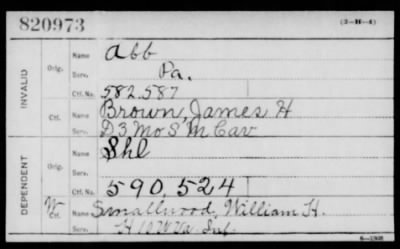 820973 (3-H-4)
INVALID
Orig.
Name Abb
Serv. Pa.
Ctf. No. 582.587
Ctf.
Name Brown, James H
Serv. D 3 Mo S M Cav
DEPENDENT
Orig.
Name Shl
Serv.
Ctf. No. 590,524
W
Ctf.
Name Smallwood, William H.
Serv. H 10 W Va Inf.